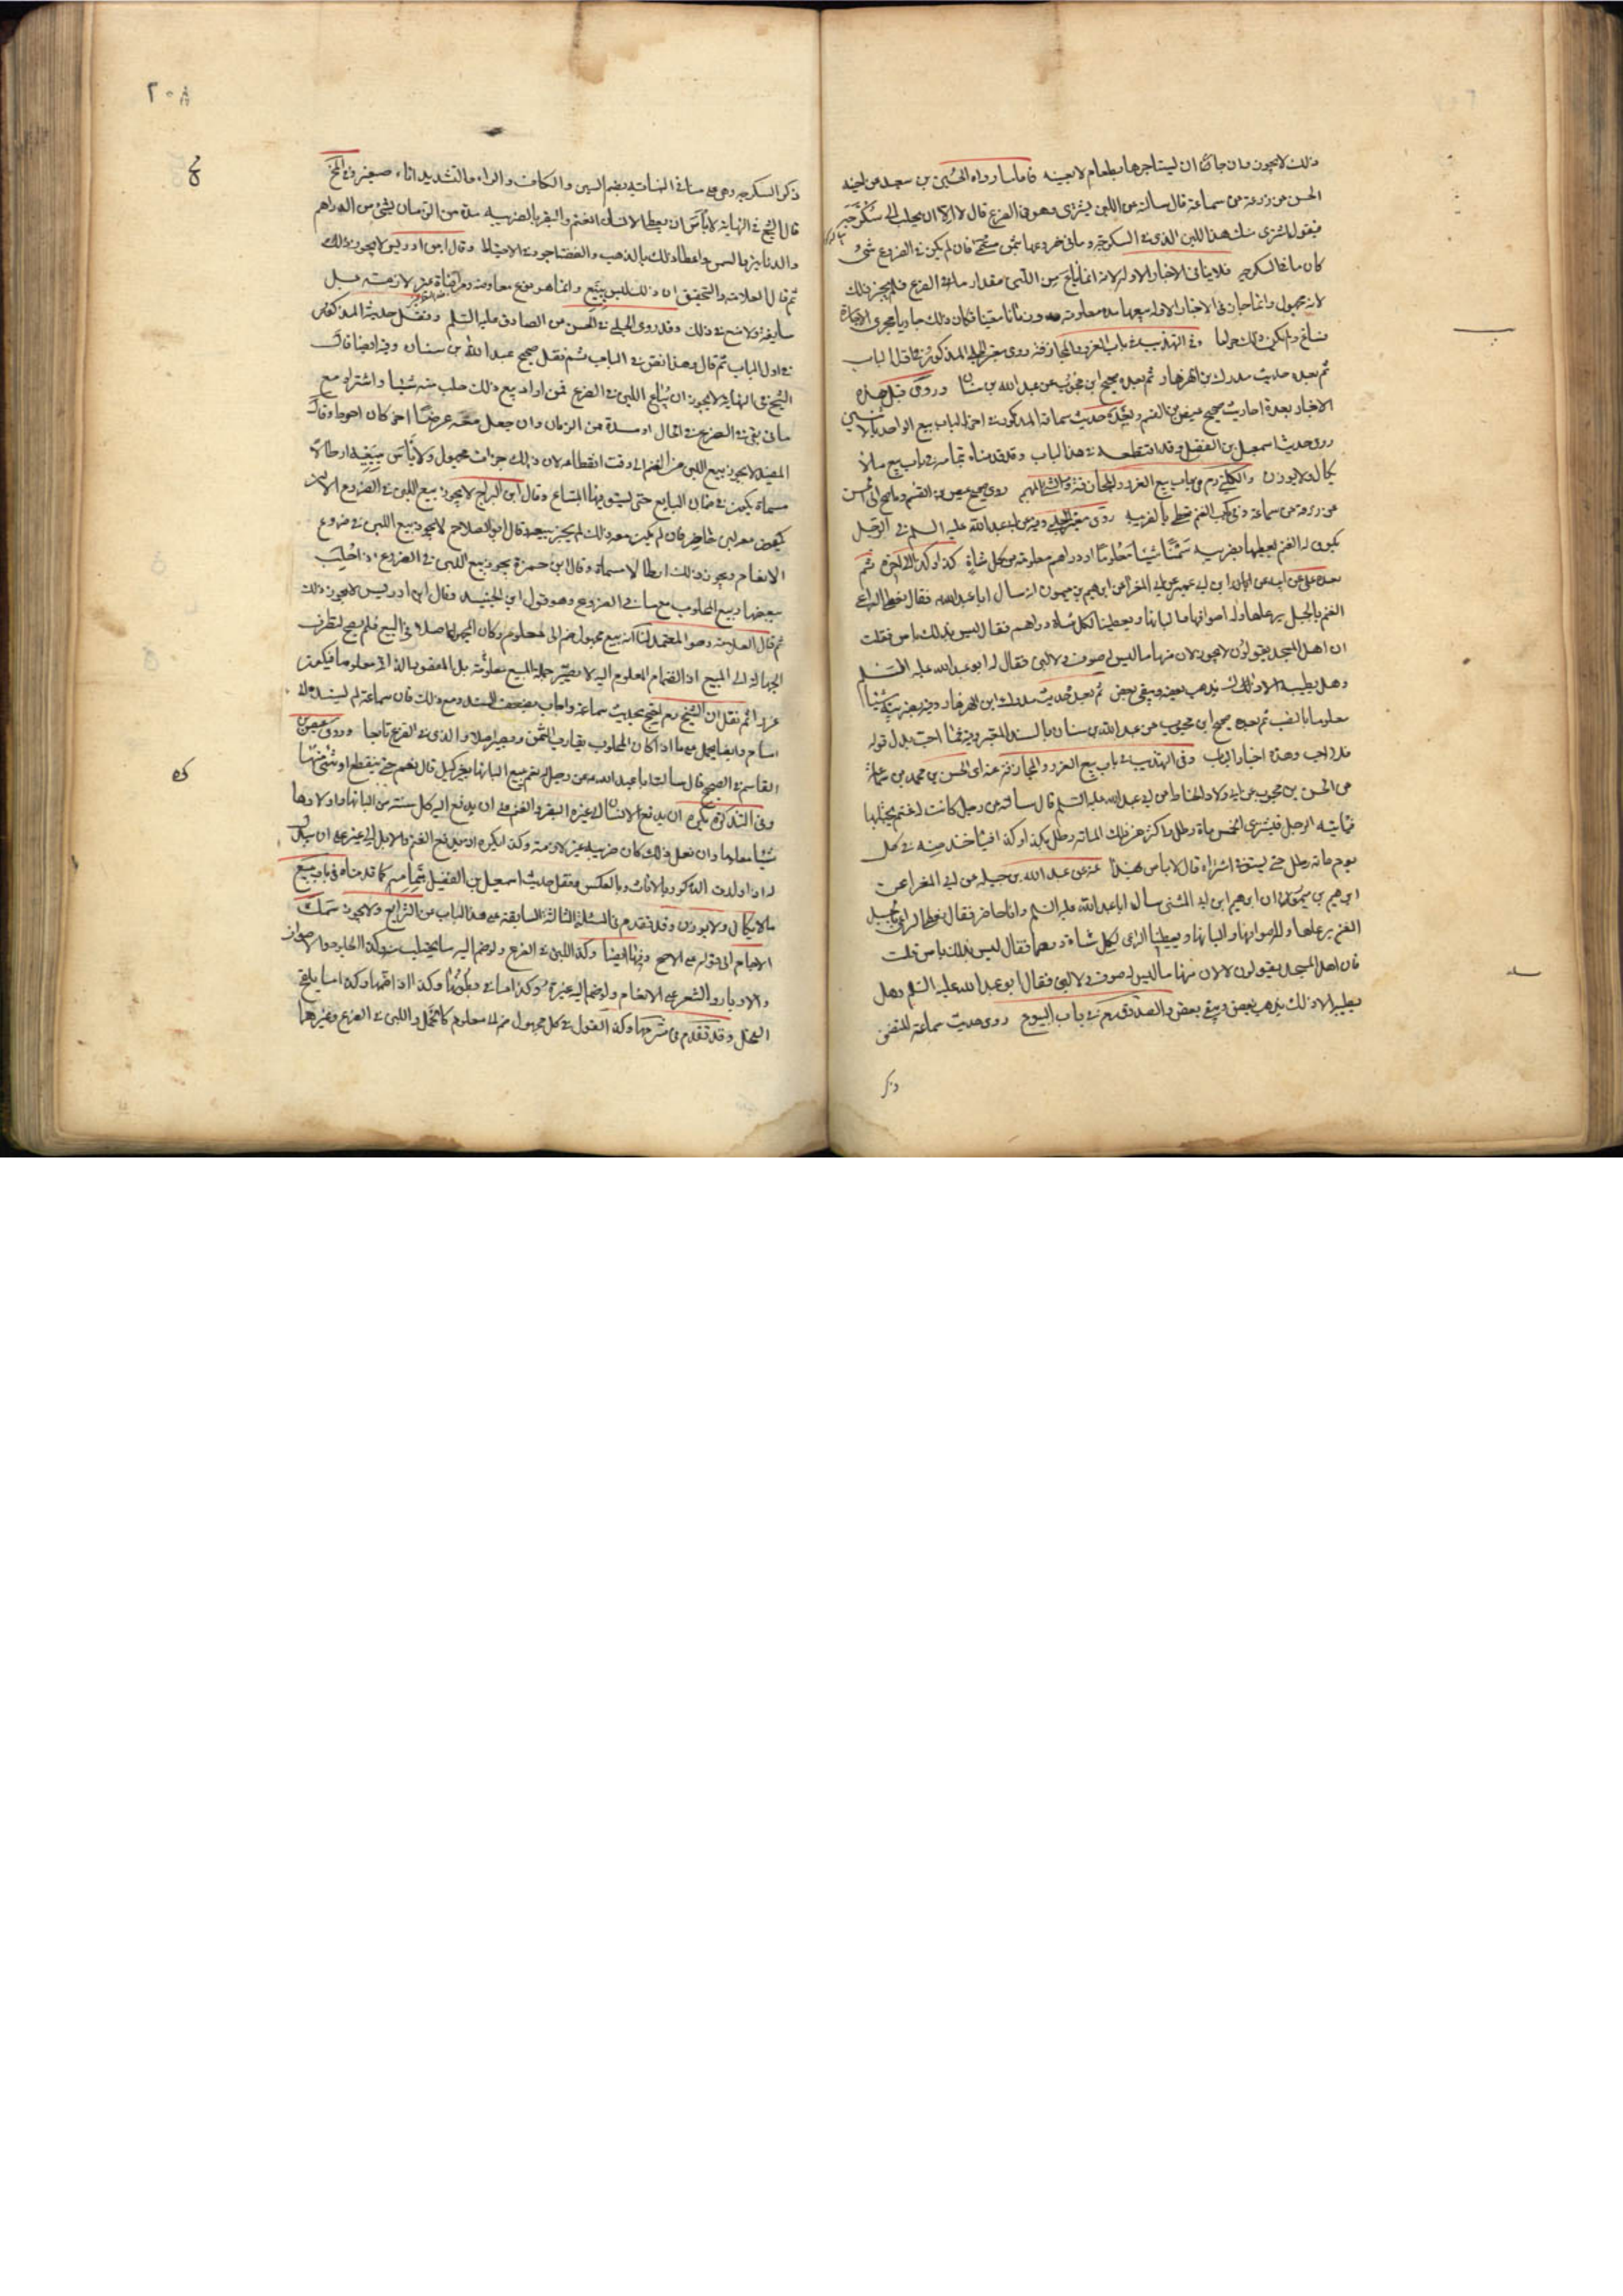 ذلك لا يجوز وان جاز ان يستاجرها بطعام لا بعينه فاما ما رواه الحسين بن سعيد عن اخيه
الحسن عن زرعة عن سماعة قال سالته عن اللبن يشترى وهو في الضرع قال لا الا ان يحلب الى سكرجة
فيقول اشترى منك هذا اللبن الذي في السكرجة وما في ضروعها بثمن مسمى فان لم يكن في الضرع شئ
كان ما في السكرجة فلا ينافي الاخبار الاولة لانه انما باع من اللبن مقدار ما في الضرع فلم يجز ذلك
لانه مجهول وانما جاز في الاخبار الاولة بيعها مدة معلومة وزمانا معينا فكان ذلك جاريا مجرى الاجارة
فساغ ولم يكن ذلك في وفي التهذيب في باب الغرر والمجازفة روى المذكور في اول الباب
ثم بعده حديث مدرك بن الهزهاز ثم بعده صحيح ابن محبوب عن عبد الله بن سنان وروى قبل هذه
الاخبار بعدة احاديث صحيح عيص بن القسم وبعده حديث سماعة المذكور في اخر الباب بيع الواحد بالاثنين
روى حديث اسمعيل بن الفضل وقد في هذا الباب وقد قدمناه بتمامه في باب بيع ما لا
يكال ولا يوزن والكليني رحم في باب بيع الغرر والمجازفة روى صحيح عيص بن القسم
عن زرعة عن سماعة وفي روى الحلبي عن ابي عبد الله عليه السلم في الرجل
يكون له الغنم يعطيها بضريبة سمنا شيئا معلوما او دراهم معلومة من كل شاة كذا وكذا ثم
بعده علي عن ابيه عن ابن ابي عمير عن ابي المغرا عن ابرهيم بن ميمون انه سال ابا عبد الله فقال نعطي الراعي
الغنم بالجبل يرعاها وله اصوافها والبانها ويعطينا لكل شاة دراهم فقال ليس بذلك باس فقلت
ان اهل المسجد يقولون لا يجوز لان منها ما ليس له صوف ولا لبن فقال له ابو عبد الله عليه السلم
وهل يطيبه الا ذلك يذهب بعضه ويبقى بعض ثم بعده حديث مدرك ابن الهزهاز
ثم بعده صحيح ابن محبوب عن عبد الله بن سنان بالسند
وهذه اخبار الباب وفي التهذيب في باب بيع الغرر والمجازفة عنه اي الحسن بن محمد بن سماعة
عن الحسن بن محبوب عن ابي ولاد الحناط عن ابي عبد الله عليه السلم قال سالته عن رجل كانت له غنم يحتلبها
فياتيه الرجل فيشتري الخمس ماة رطل واكثر من ذلك الماة رطل بكذا وكذا فياخذ منه في كل
يوم ماة رطل حتى يستوفي اشتراه قال لا باس بهذا عنه عن عبد الله بن جبلة عن ابي المغرا عن
ابرهيم بن ميمون ان ابرهيم ابن ابي المثنى سال ابا عبد الله عليه السلم وانا حاضر فقال نعطي الراعي بالجبل
الغنم يرعاها وله اصوافها والبانها ويعطينا الراعي لكل شاة درهما فقال ليس بذلك باس قلت
فان اهل المسجد يقولون لا لان منها ما ليس له صوف ولا لبن فقال ابو عبد الله عليه السلم وهل
يطيبه الا ذلك يذهب بعض ويبقى بعض والصدوق رحم في باب البيوع روى حديث سماعة المتضمن
ذكر
٢٠٨
ذكر السكرجة وهي على ما في النهاية بضم السين والكاف والراء والتشديد اناء صغير
قال الشيخ في النهاية لا باس ان يعطي الانسان الغنم والبقر بالضريبة مدة من الزمان بشئ من الدراهم
والدنانير والسمن واعطاء ذلك بالذهب والفضة اجود في الاحتياط وقال ابن ادريس لا يجوز ذلك
ثم قال العلامة والتحقيق ان ذلك ليس ببيع وانما هو نوع معاوضة ومراضاة غير لازمة بل
سايغة ولا منع في ذلك وقد روى الحلبي في الحسن عن الصادق عليه السلم ونقل حديثه المذكور
في اول الباب ثم قال وهذا نص في الباب ثم نقل صحيح عبد الله بن سنان وفيه ايضا قال
الشيخ في النهاية لا يجوز ان يباع اللبن في الضرع فمن اراد بيع ذلك حلب منه شيئا واشتراه مع
ما بقي في الضرع في الحال او مدة من الزمان وان جعل معه عرضا اخر كان احوط وقال
المفيد لا يجوز بيع اللبن من الغنم الى وقت انقطاعه لان ذلك جزاف مجهول ولا باس ببيعه ارطالا
مسماة يكون في ضمان البايع حتى يستوفيها المبتاع وقال ابن البراج لا يجوز بيع اللبن في الضرع الا ان
يكون معه لبن حاضر فان لم يكن معه ذلك لم يجز بيعه وقال ابو الصلاح لا يجوز بيع اللبن في ضروع
الانعام ويجوز ذلك ارطالا مسماة وقال ابن حمزة يجوز بيع اللبن في الضرع اذا حلب
بعضها وبيع المحلوب مع ما في الضروع وهو قول ابن الجنيد وقال ابن ادريس لا يجوز ذلك
ثم قال العلامة وهو المعتمد لنا انه بيع مجهول ضم الى معلوم وكان المجهول اصلا في البيع فلم يصح لتطرق
الجهالة الى المبيع اذ انضمام المعلوم اليه لا يصير جملة المبيع معلومة بل المقصود بالذات
ثم نقل ان الشيخ رحم احتج بحديث سماعة واجاب بضعف السند ومع ذلك فان سماعة لم يسنده الى
امام وايضا يحمل على ما اذا كان المحلوب يقارب الثمن ويصير اصلا والذي في الضرع تابعا وروى عيص بن
القاسم في الصحيح قال سالت ابا عبد الله عن رجل له نعم يبيع البانها بغير كيل قال نعم حتى ينقطع او شئ منها
وفي التذكرة يكره ان يدفع الانسان الى غيره البقر والغنم على ان يدفع اليه كل سنة من البانها واولادها
شيئا معلوما وان فعل ذلك كان ضريبة غير لازمة وكذا يكره ان يدفع الغنم والابل الى غيره على ان يبدل
له اذا ولدت الذكور بالاناث وبالعكس ونقل حديث اسمعيل بن الفضيل بتمامه كما قدمناه في باب بيع
ما لا يكال ولا يوزن وقد تقدم في المسئلة الثالثة السابقة على هذا الباب من الشرايع ولا يجوز سمك
الاجام الى قوله على الاصح وفيها ايضا وكذا اللبن في الضرع ولو ضم اليه ما يحتلب منه وكذا الجلود والاصواف
والاوبار والشعر على الانعام ولو ضم اليه غيره وكذا ما في بطونها وكذا اذا ضمها وكذا ما يلقح
الفحل وقد تقدم في شرحها وكذا القول في كل مجهول ضم الى معلوم كالحمل واللبن في الضرع وغيرهما